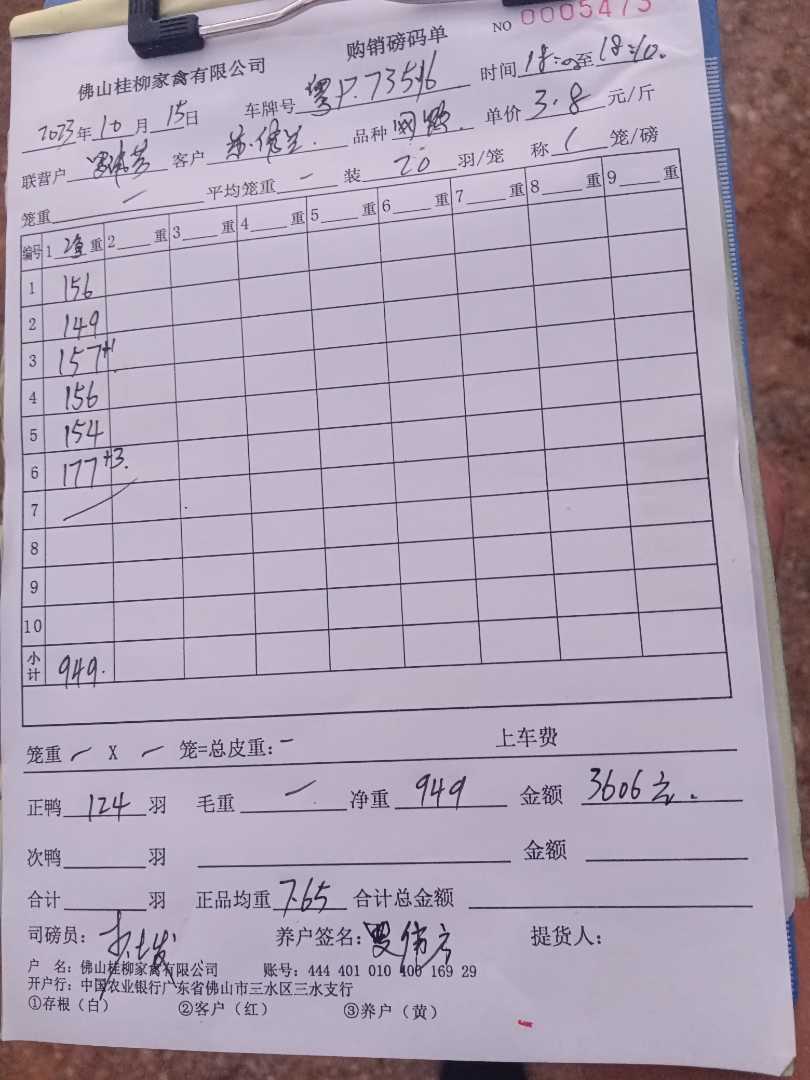 佛山桂柳家禽有限公司 购销磅码单 NO 0005473
2023年10月15日 车牌号 粤P.73516 时间 18: 至 18:10.
联营户 客户 品种 单价 3.8 元/斤
笼重 一 平均笼重 一 装 20 羽/笼 称 1 笼/磅
编号 1 净 重 2 重 3 重 4 重 5 重 6 重 7 重 8 重 9 重
1 156
2 149
3 157+1
4 156
5 154
6 177+3.
7
8
9
10
小计 949.
笼重 一 X 一 笼=总皮重:一 上车费
正鸭 124 羽 毛重 一 净重 949 金额 3606元.
次鸭 羽 金额
合计 羽 正品均重 7.65 合计总金额
司磅员: 养户签名: 提货人:
户 名: 佛山桂柳家禽有限公司 账号: 444 401 010 400 169 29
开户行: 中国农业银行广东省佛山市三水区三水支行
①存根（白） ②客户（红） ③养户（黄）